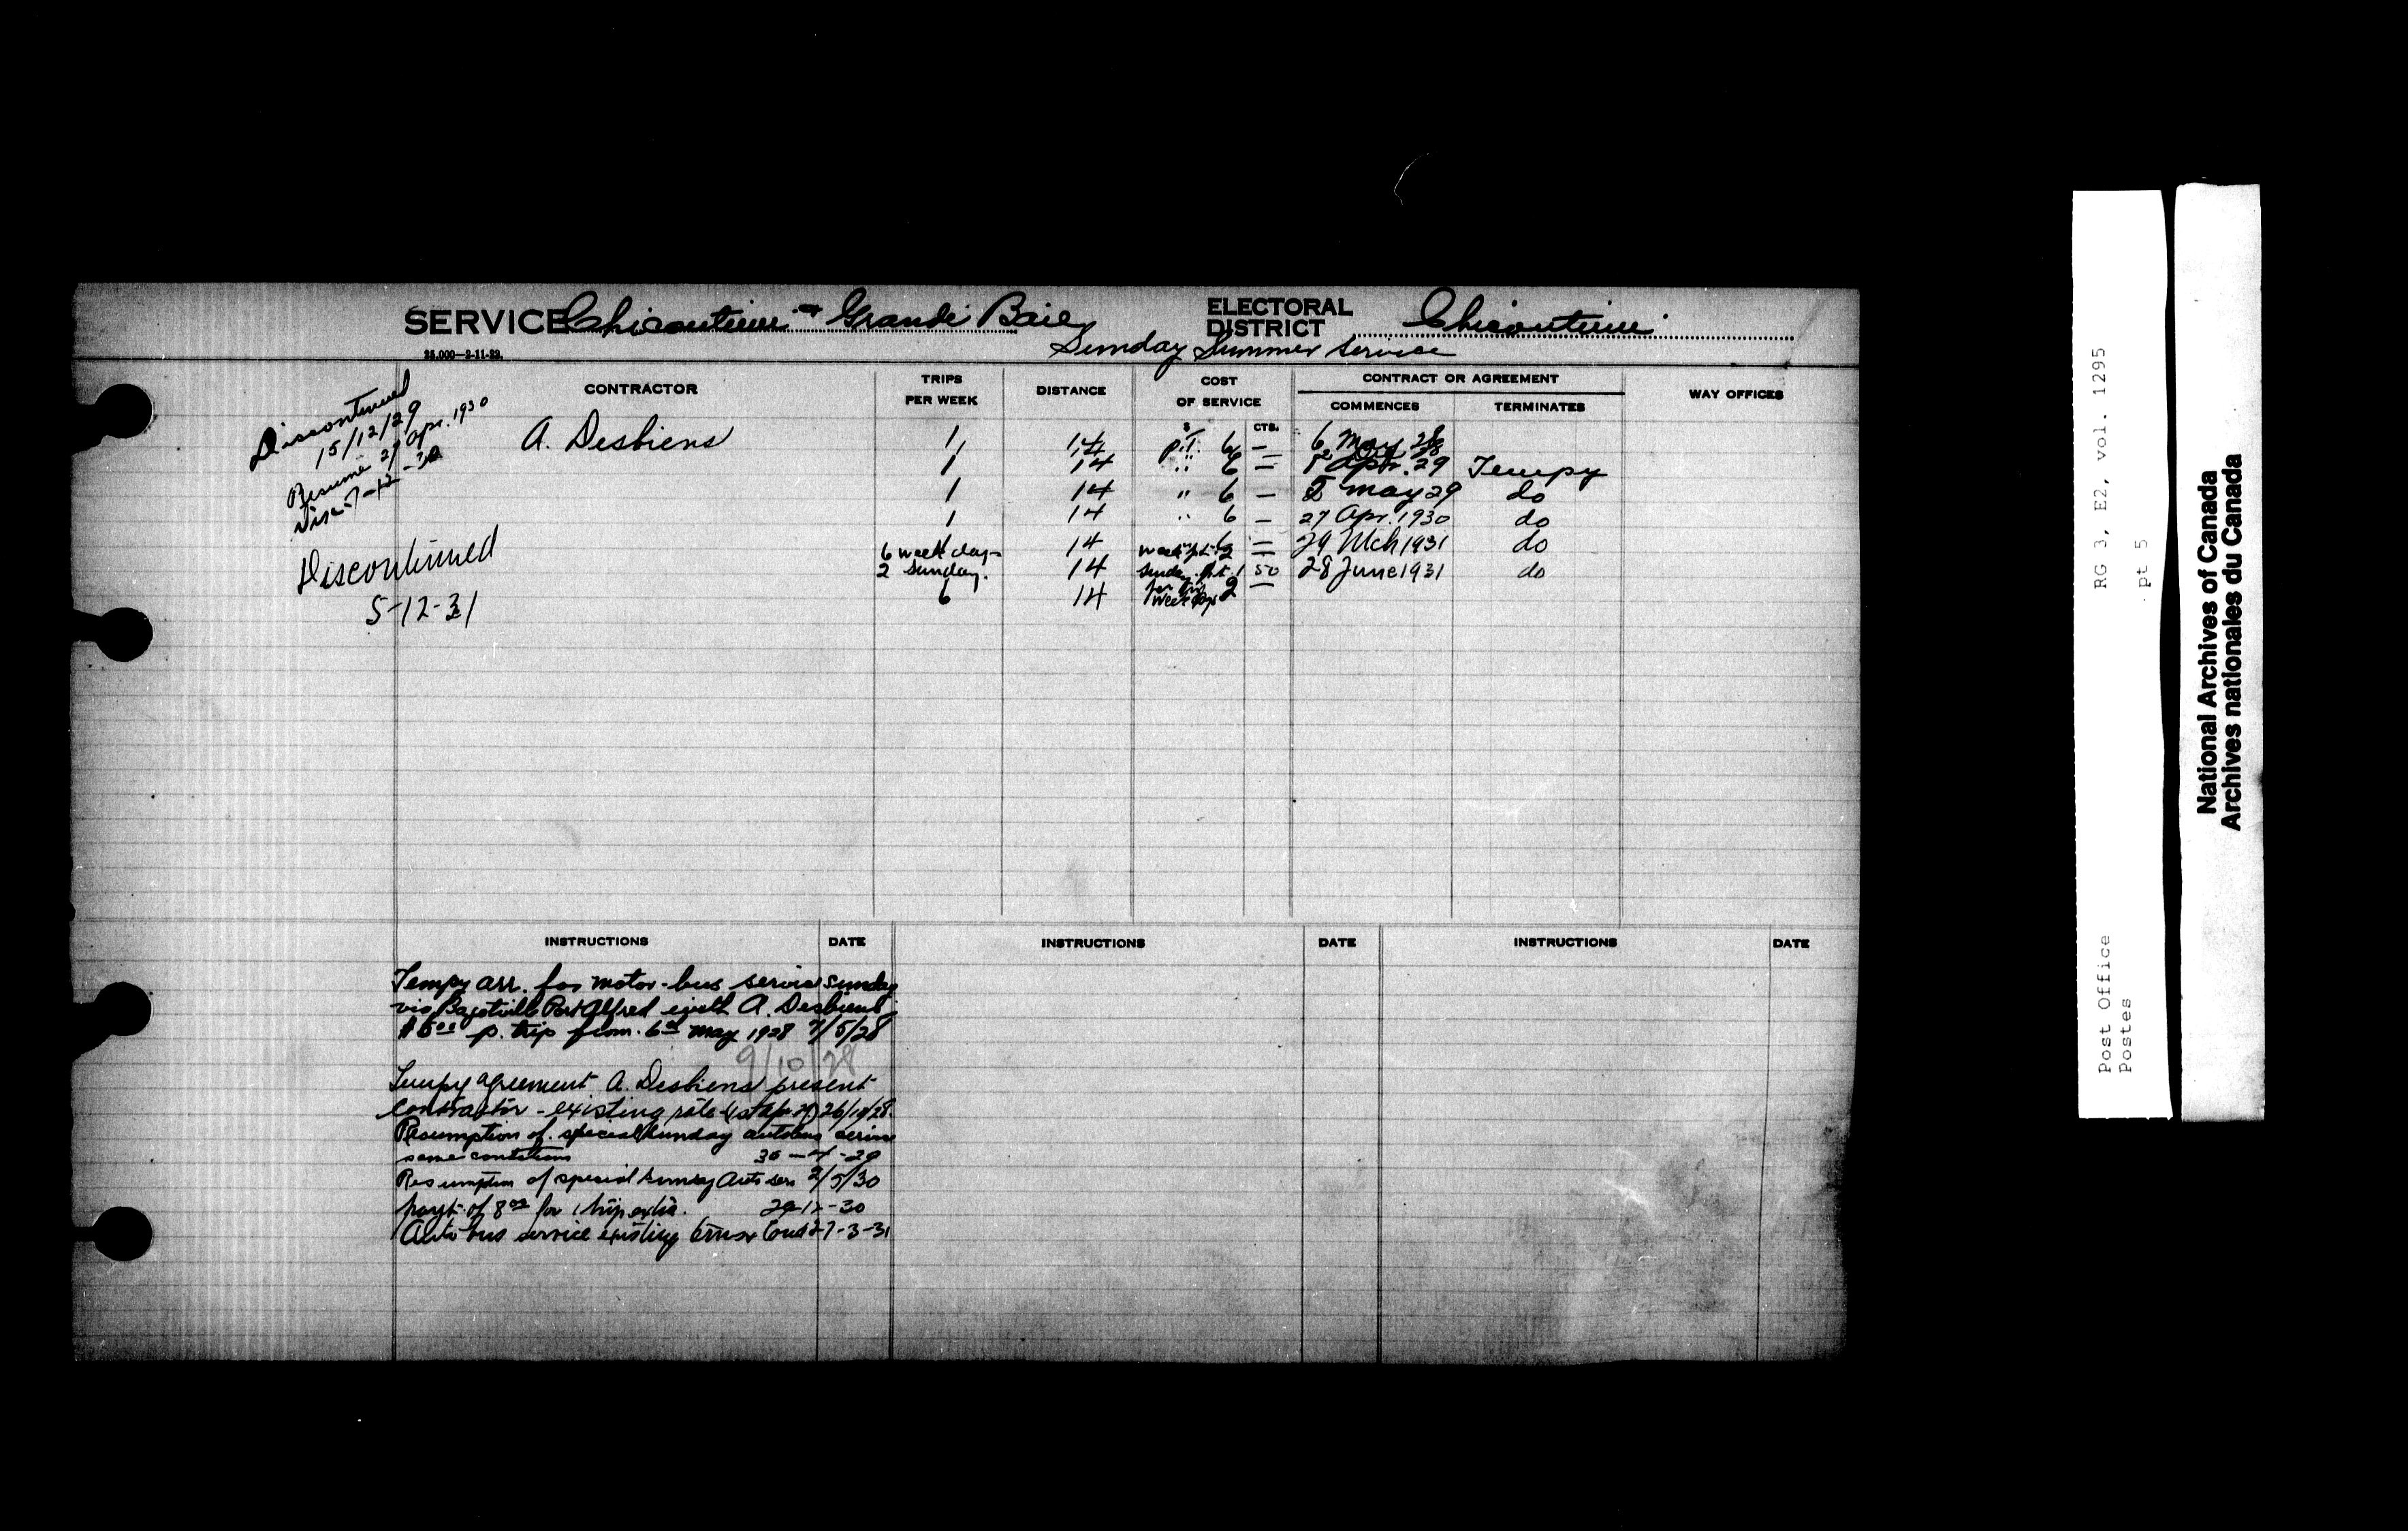 SERVICE Chicoutimi - Grande Baie ELECTORAL DISTRICT Chicoutimi
25.000—2-11-22.
Sunday Summer Service
CONTRACTOR TRIPS PER WEEK DISTANCE COST OF SERVICE CONTRACT OR AGREEMENT WAY OFFICES
COMMENCES TERMINATES
$ CTS.
Discontinued
15/12/29
Resume 27 Apr. 1930
Disc 7-12-30
Discontinued
5-12-31
A. Desbiens 1 14 p.t. 6 — 6 May 28
1 14 " 6 — Apr. 29 Tempy
1 14 " 6 — May 29 do
1 14 " 6 — 27 Apr. 1930 do
14 6 — 29 Mch 1931 do
6 week day 2 —
2 Sunday. 14 Sunday p.t. 1 50 28 June 1931 do
6 14 week days 2 —
INSTRUCTIONS DATE INSTRUCTIONS DATE INSTRUCTIONS DATE
Tempy arr. for motor-bus service Sunday
via Bagotville Port Alfred with A. Desbiens
$6.00 p. trip from 6th May 1928 7/5/28
9/10/28
Tempy agreement A. Desbiens present
contractor - existing rate (1st Apr 29) 26/10/28
Resumption of special Sunday autobus service
same conditions 30-4-29
Resumption of special Sunday Auto ser 2/5/30
payt. of 8.00 for 1 trip extra. 29-12-30
Auto bus service existing terms & Cond 27-3-31
RG 3, E2, vol. 1295
pt 5
Post Office
Postes
National Archives of Canada
Archives nationales du Canada